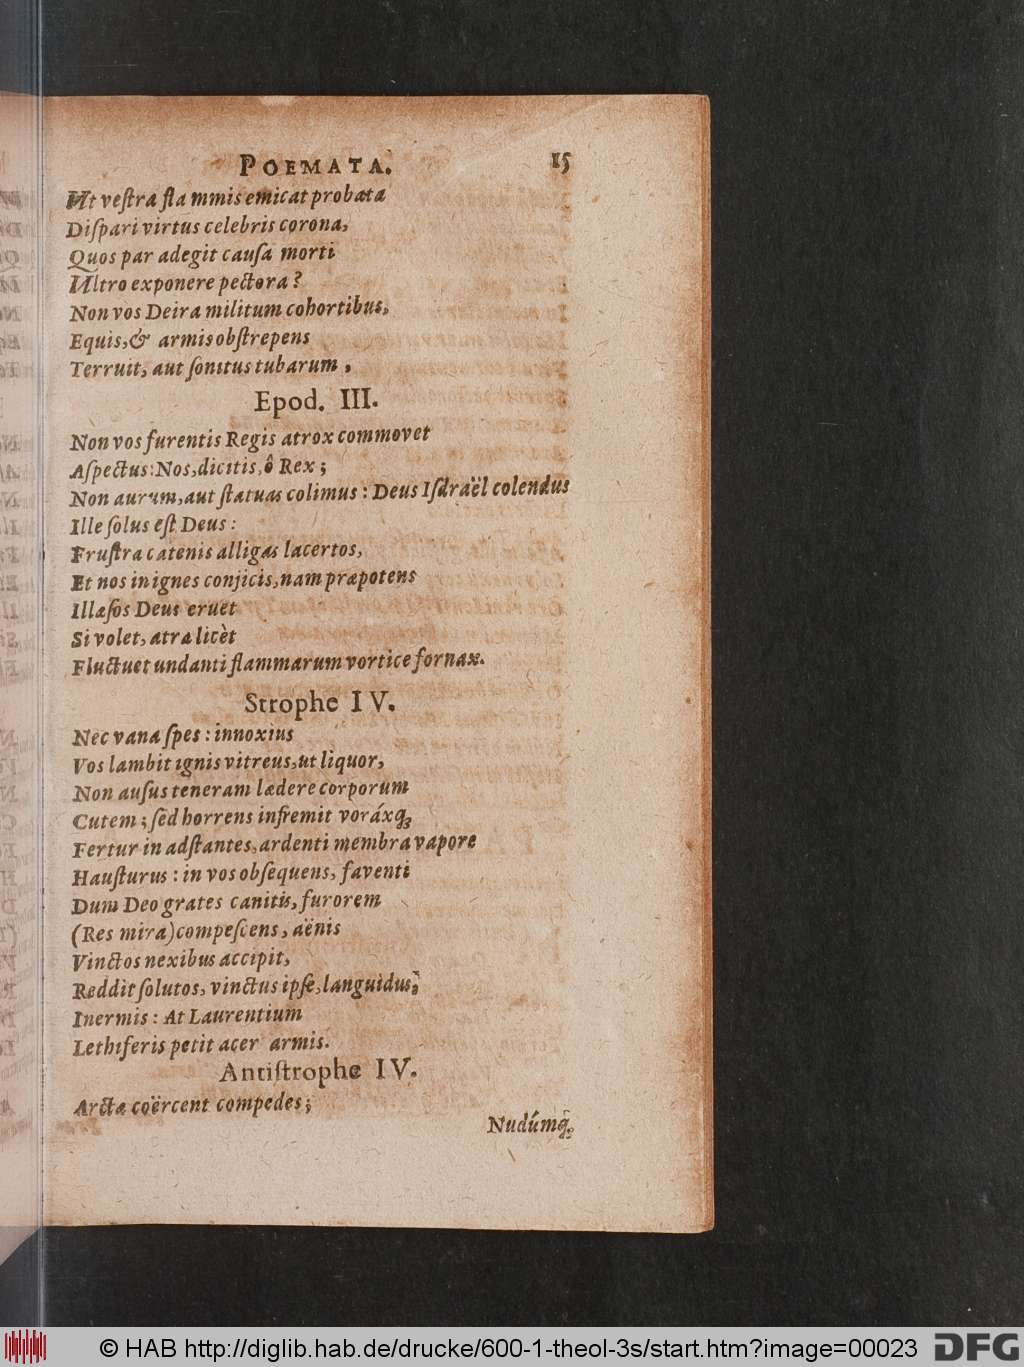 POEMATA. 15
Ut veſtra fla mmis emicat probata
Diſpari virtus celebris corona,
Quos par adegit cauſa morti
Ultro exponere pectora?
Non vos Deira militum cohortibus,
Equis, & armis obſtrepens
Terruit, aut ſonitus tubarum,
Epod. III.
Non vos furentis Regis atrox commovet
Aſpectus: Nos, dicitis, ô Rex;
Non aurum, aut ſtatuas colimus: Deus Iſdraël colendus
Ille ſolus eſt Deus:
Fruſtra catenis alligas lacertos,
Et nos in ignes conjicis, nam præpotens
Illæſos Deus eruet
Si volet, atra licèt
Fluctuet undanti flammarum vortice fornax.
Strophe IV.
Nec vana ſpes: innoxius
Vos lambit ignis vitreus, ut liquor,
Non auſus teneram lædere corporum
Cutem; ſed horrens infremit voráxq;
Fertur in adſtantes, ardenti membra vapore
Hauſturus: in vos obſequens, faventi
Dum Deo grates canitis, furorem
(Res mira) compeſcens, aënis
Vinctos nexibus accipit,
Reddit ſolutos, vinctus ipſe, languidus;
Inermis: At Laurentium
Lethiferis petit acer armis.
Antiſtrophe IV.
Arctæ coërcent compedes;
Nudúmq;
© HAB http://diglib.hab.de/drucke/600-1-theol-3s/start.htm?image=00023 DFG